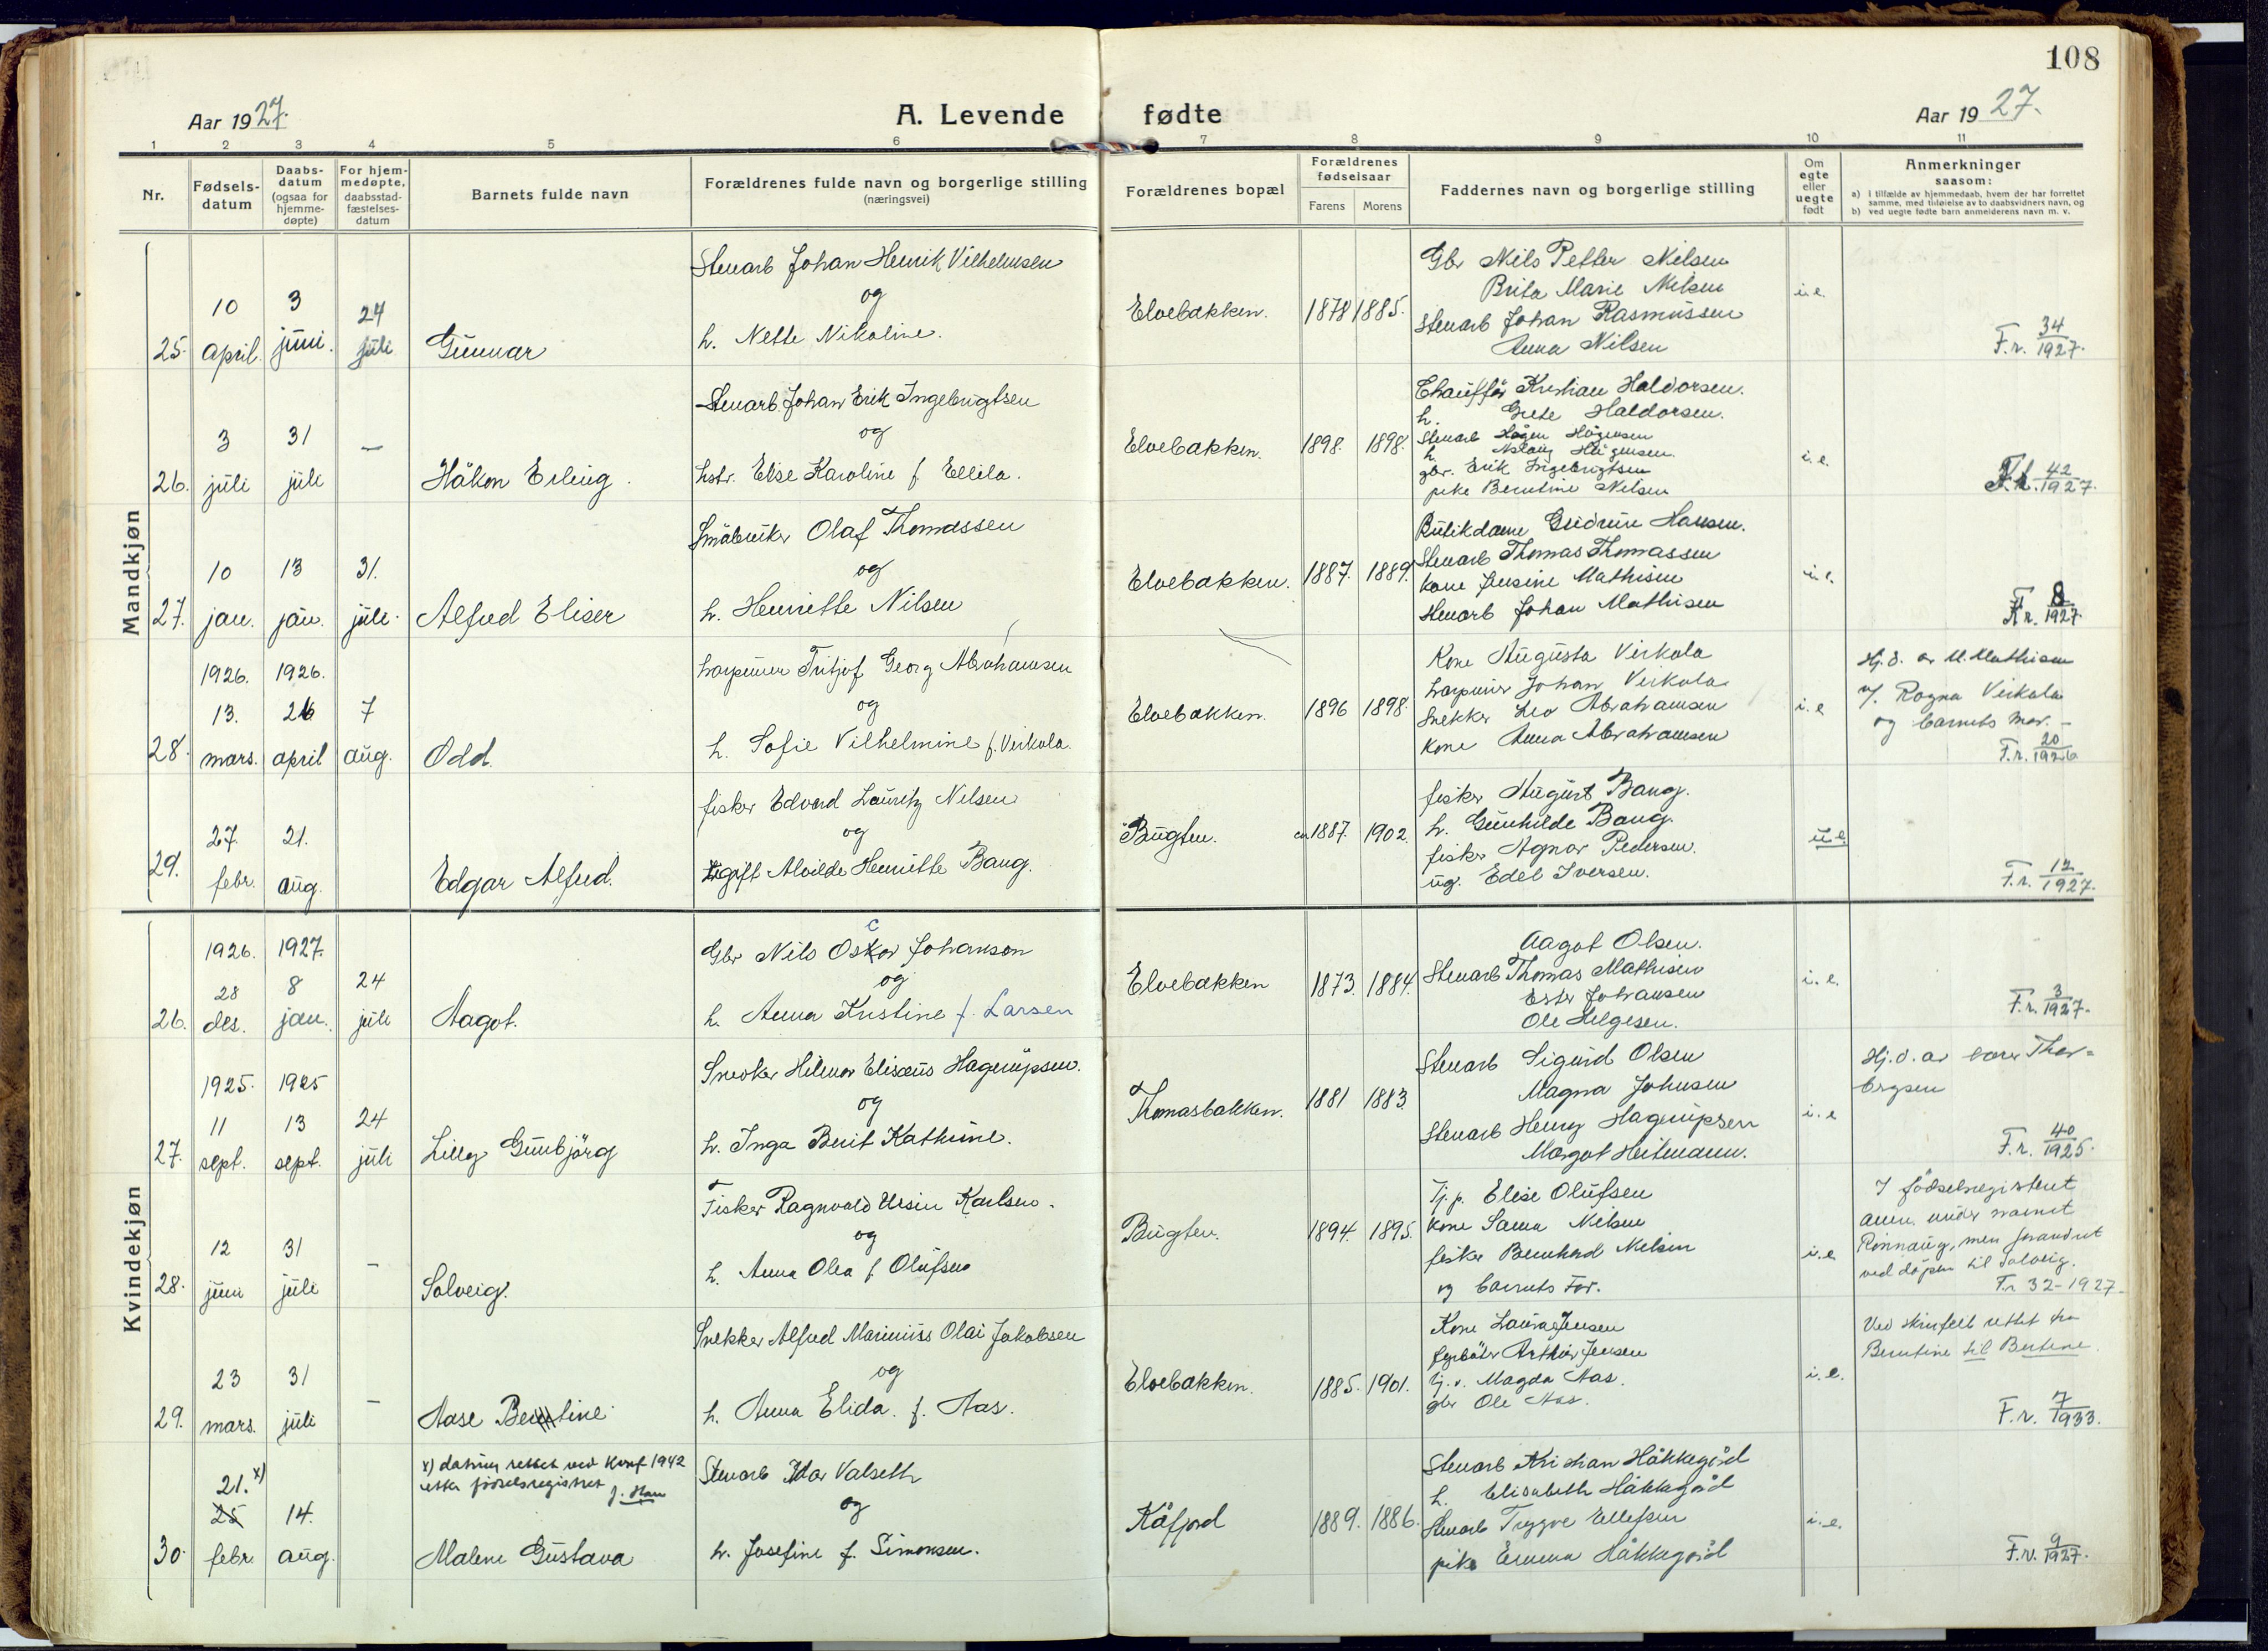 108
Aar 1927.
A. Levende fødte
Aar 1927.
1 2 3 4 5 6 7 8 9 10 11
Nr.
Fødsels-
datum
Daabs-
datum
(ogsaa for
hjemme-
døpte)
For hjem-
medøpte,
daabsstad-
fæstelses-
datum
Barnets fulde navn
Forældrenes fulde navn og borgerlige stilling
(næringsvei)
Forældrenes bopæl
Forældrenes
fødselsaar
Farens Morens
Faddernes navn og borgerlige stilling
Om
egte
eller
uegte
født
Anmerkninger
saasom:
a) i tilfælde av hjemmedaab, hvem der har forrettet
samme, med tilføielse av to daabsvidners navn, og
b) ved uegte fødte barn anmelderens navn m. v.
Mandkjøn
25.
10
april.
3
juni.
24
juli
Gunnar
Stenarb Johan Henrik Vilhelmsen
og
h. Nette Nikoline.
Elvebakken.
1878 1885.
Gbr Nils Petter Nilsen
Brita Marie Nilsen
Stenarb Johan Rasmussen
Anna Nilsen
i.e.
F.r. 34/1927.
26.
3
juli
31
juli
—
Håkon Erling.
Stenarb. Johan Erik Ingebrigtsen
og
hstr. Elise Karoline f. Ellila.
Elvebakken.
1898. 1898.
Chauffør Kristian Haldorsen.
h. Grete Haldorsen.
Stenarb Hågen Hågensen
h. Aslaug Hågensen.
gbr. Erik Ingebrigtsen
pike Berntine Nilsen
i.e.
F.r. 42/1927.
27.
10
jan.
13
jan.
31.
juli.
Alfred Eliser
Småbruker Olaf Thomassen
og
h. Henriette Nilsen
Elvebakken.
1887. 1889.
Butikdame Gudrun Hansen.
Stenarb Thomas Thomassen
kone Jensine Mathisen
Stenarb Johan Mathisen
i.e.
F.r. 8/1927.
28.
1926.
13.
mars.
1926.
26
april
7
aug.
Odd.
Fritjof Georg Abrahamsen
og
h. Sofie Vilhelmine f. Virkola.
Elvebakken.
1896 1898.
Kone Augusta Virkola
Johan Virkola
Snekker Leo Abrahamsen
Kone Anna Abrahamsen
i.e
Hj.d. av M. Mathisen
v/. Ragna Virkola
og barnets mor. –
F.r. 20/1926
29.
27.
febr.
21.
aug.
Edgar Alfred.
fisker Edvard Lauritz Nilsen
og
ugift Alvilde Henriette Bang.
Bugten.
ca 1887. 1902.
fisker August Bang.
h. Gunhilde Bang.
fisker Agnar Pedersen.
ug. Edel Iversen.
u.e.
F.r. 12/1927.
Kvindekjøn
26.
1926.
28
des.
1927.
8
jan.
24
juli
Aagot.
Gbr Nils Oscar Johansen
og
h. Anna Kristine f. Larsen
Elvebakken
1873. 1884.
Aagot Olsen.
Stenarb Thomas Mathisen
Ester Johansen
Ole Helgesen.
i.e.
F.r. 3/1927.
27.
1925.
11
sept.
1925
13
sept.
24
juli
Lilly Gunbjörg
Snekker Hilmar Elisæus Hagerupsen.
og
h. Inga Berit Kathrine.
Thomasbakken.
1881 1883.
Stenarb Sigurd Olsen
Magna Johnsen
Stenarb Henry Hagerupsen
Margot Heitmann.
i.e
Hj.d. av Thor=
F.r. 40/1925.
28.
12
juni
31
juli
–
Solveig.
Fisker Ragnvald Ursin Karlsen.
og
h. Anna Olea f. Olufsen
Bugten.
1894. 1895.
Tj.p. Elise Olufsen
Kone Sanna Nilsen
fisker Bernhard Nilsen
og barnets Far.
i.e
I fødselsregisteret
anm. under navnet
Rønnaug, men forandret
ved dåpen til Solveig.
Fr 32-1927
29.
23
mars.
31
juli
–
Aase Bertine
Snekker Alfred Marinius Olai Jakobsen
og
h. Anna Elida. f. Aas.
Elvebakken.
1885. 1901.
Kone Laura Jensen
fyrbøter Arthur Jensen
Tj.p. Magda Aas.
gbr Ole Aas.
i.e.
Ved skrivfeil rettet fra
Berntine til Bertine.
F.r. 7/1933.
30.
21. x)
25
febr.
14.
aug.
x) datum rettet ved konf 1942
etter fødselsregistret
Malene Gustava
Stenarb Idar Valseth
og
h. Josefine f. Simonsen.
Kåfjord
1889. 1886.
Stenarb Kristian Håkkegård
h. Elisabeth Håkkegård
Stenarb Trygve Ellefsen
pike Emma Håkkegård
i.e.
F.r. 9/1927.